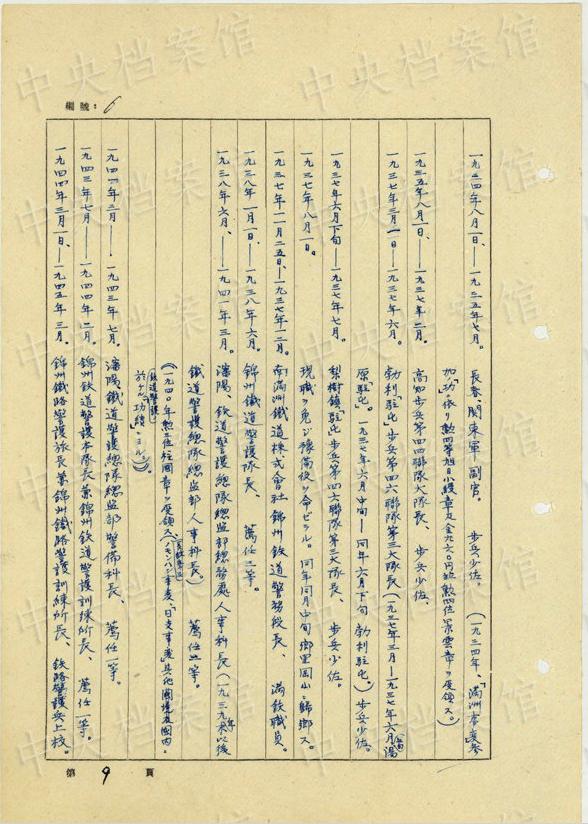 中央档案馆
編號：6
一九三四年八月一日、——一九三五年七月。 長春、関東軍副官。 步兵少佐。 （一九三四年、「満洲事変」参
加ノ功ニ依リ勲四等旭日小綬章及金九六〇円
勲四位景雲章ヲ受領ス。）
一九三五年八月一日、——一九三七年二月。 高知步兵第四四聯隊大隊長、 步兵少佐。
一九三七年三月一日——一九三七年六月。 勃利駐屯步兵第四六聯隊第三大隊長（一九三七年三月—一九三七年六月湯
原駐屯。一九三七年六月中旬—同年六月下旬 勃利駐屯。）步兵少佐。
一九三七年六月下旬——一九三七年七月。 梨樹鎮駐屯步兵第四六聯隊第三大隊長、 步兵少佐。
一九三七年八月一日。 現職ヲ免ジ豫備役ヲ命ゼラル。同年同月中旬郷里岡山ニ歸郷ス。
一九三七年一一月二五日、—一九三七年一二月。 南満洲鉄道株式會社錦州鉄道警務段長、 満鉄職員。
一九三八年一月一日、——一九三八年六月。 錦州鉄道警護隊長、 薦任二等。
一九三八年六月、——一九四一年三月。 瀋陽、鉄道警護總隊總監部總務處人事科長（一九三九年以後
鐵道警護總隊總監部人事科長。） 薦任二等。
（一九四〇年勲三位柱国章ヲ受領ス、「日支事変」其他國境及國内
鉄道警護ニ
於ケル功績ニヨル。）
一九四一年三月——一九四三年七月。 瀋陽鐵道警護總隊總監部警備科長、 薦任一等。
一九四三年七月——一九四四年二月。 錦州鉄道警護本隊長兼錦州鉄道警護訓練所長、 薦任一等。
一九四四年三月一日、——一九四五年三月。 錦州鐵路警護旅長兼錦州鐵路警護訓練所長、 鉄路警護兵上校。
第 9 頁